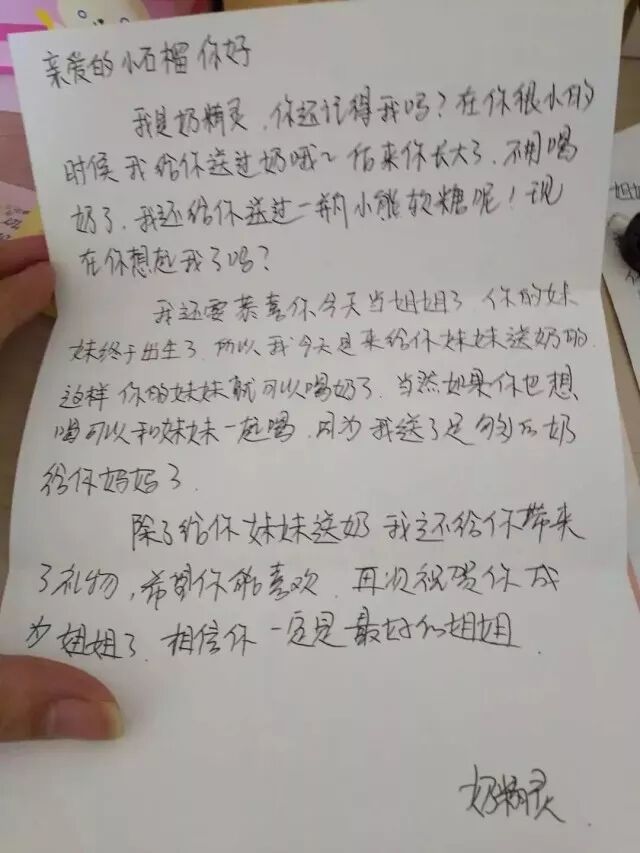 亲爱的小石榴你好
我是奶精灵，你还记得我吗？在你很小的
时候我给你送过奶哦～后来你长大了，不用喝
奶了，我还给你送过一瓶小熊软糖呢！现
在你想起我了吗？
我还要恭喜你今天当姐姐了，你的妹
妹终于出生了，所以我今天是来给你妹妹送奶的，
这样你的妹妹就可以喝奶了，当然如果你也想
喝可以和妹妹一起喝，因为我送了足够的奶
给你妈妈了，
除了给你妹妹送奶我还给你带来
了礼物，希望你能喜欢，再次祝贺你成
为姐姐了，相信你一定是最好的姐姐
奶精灵